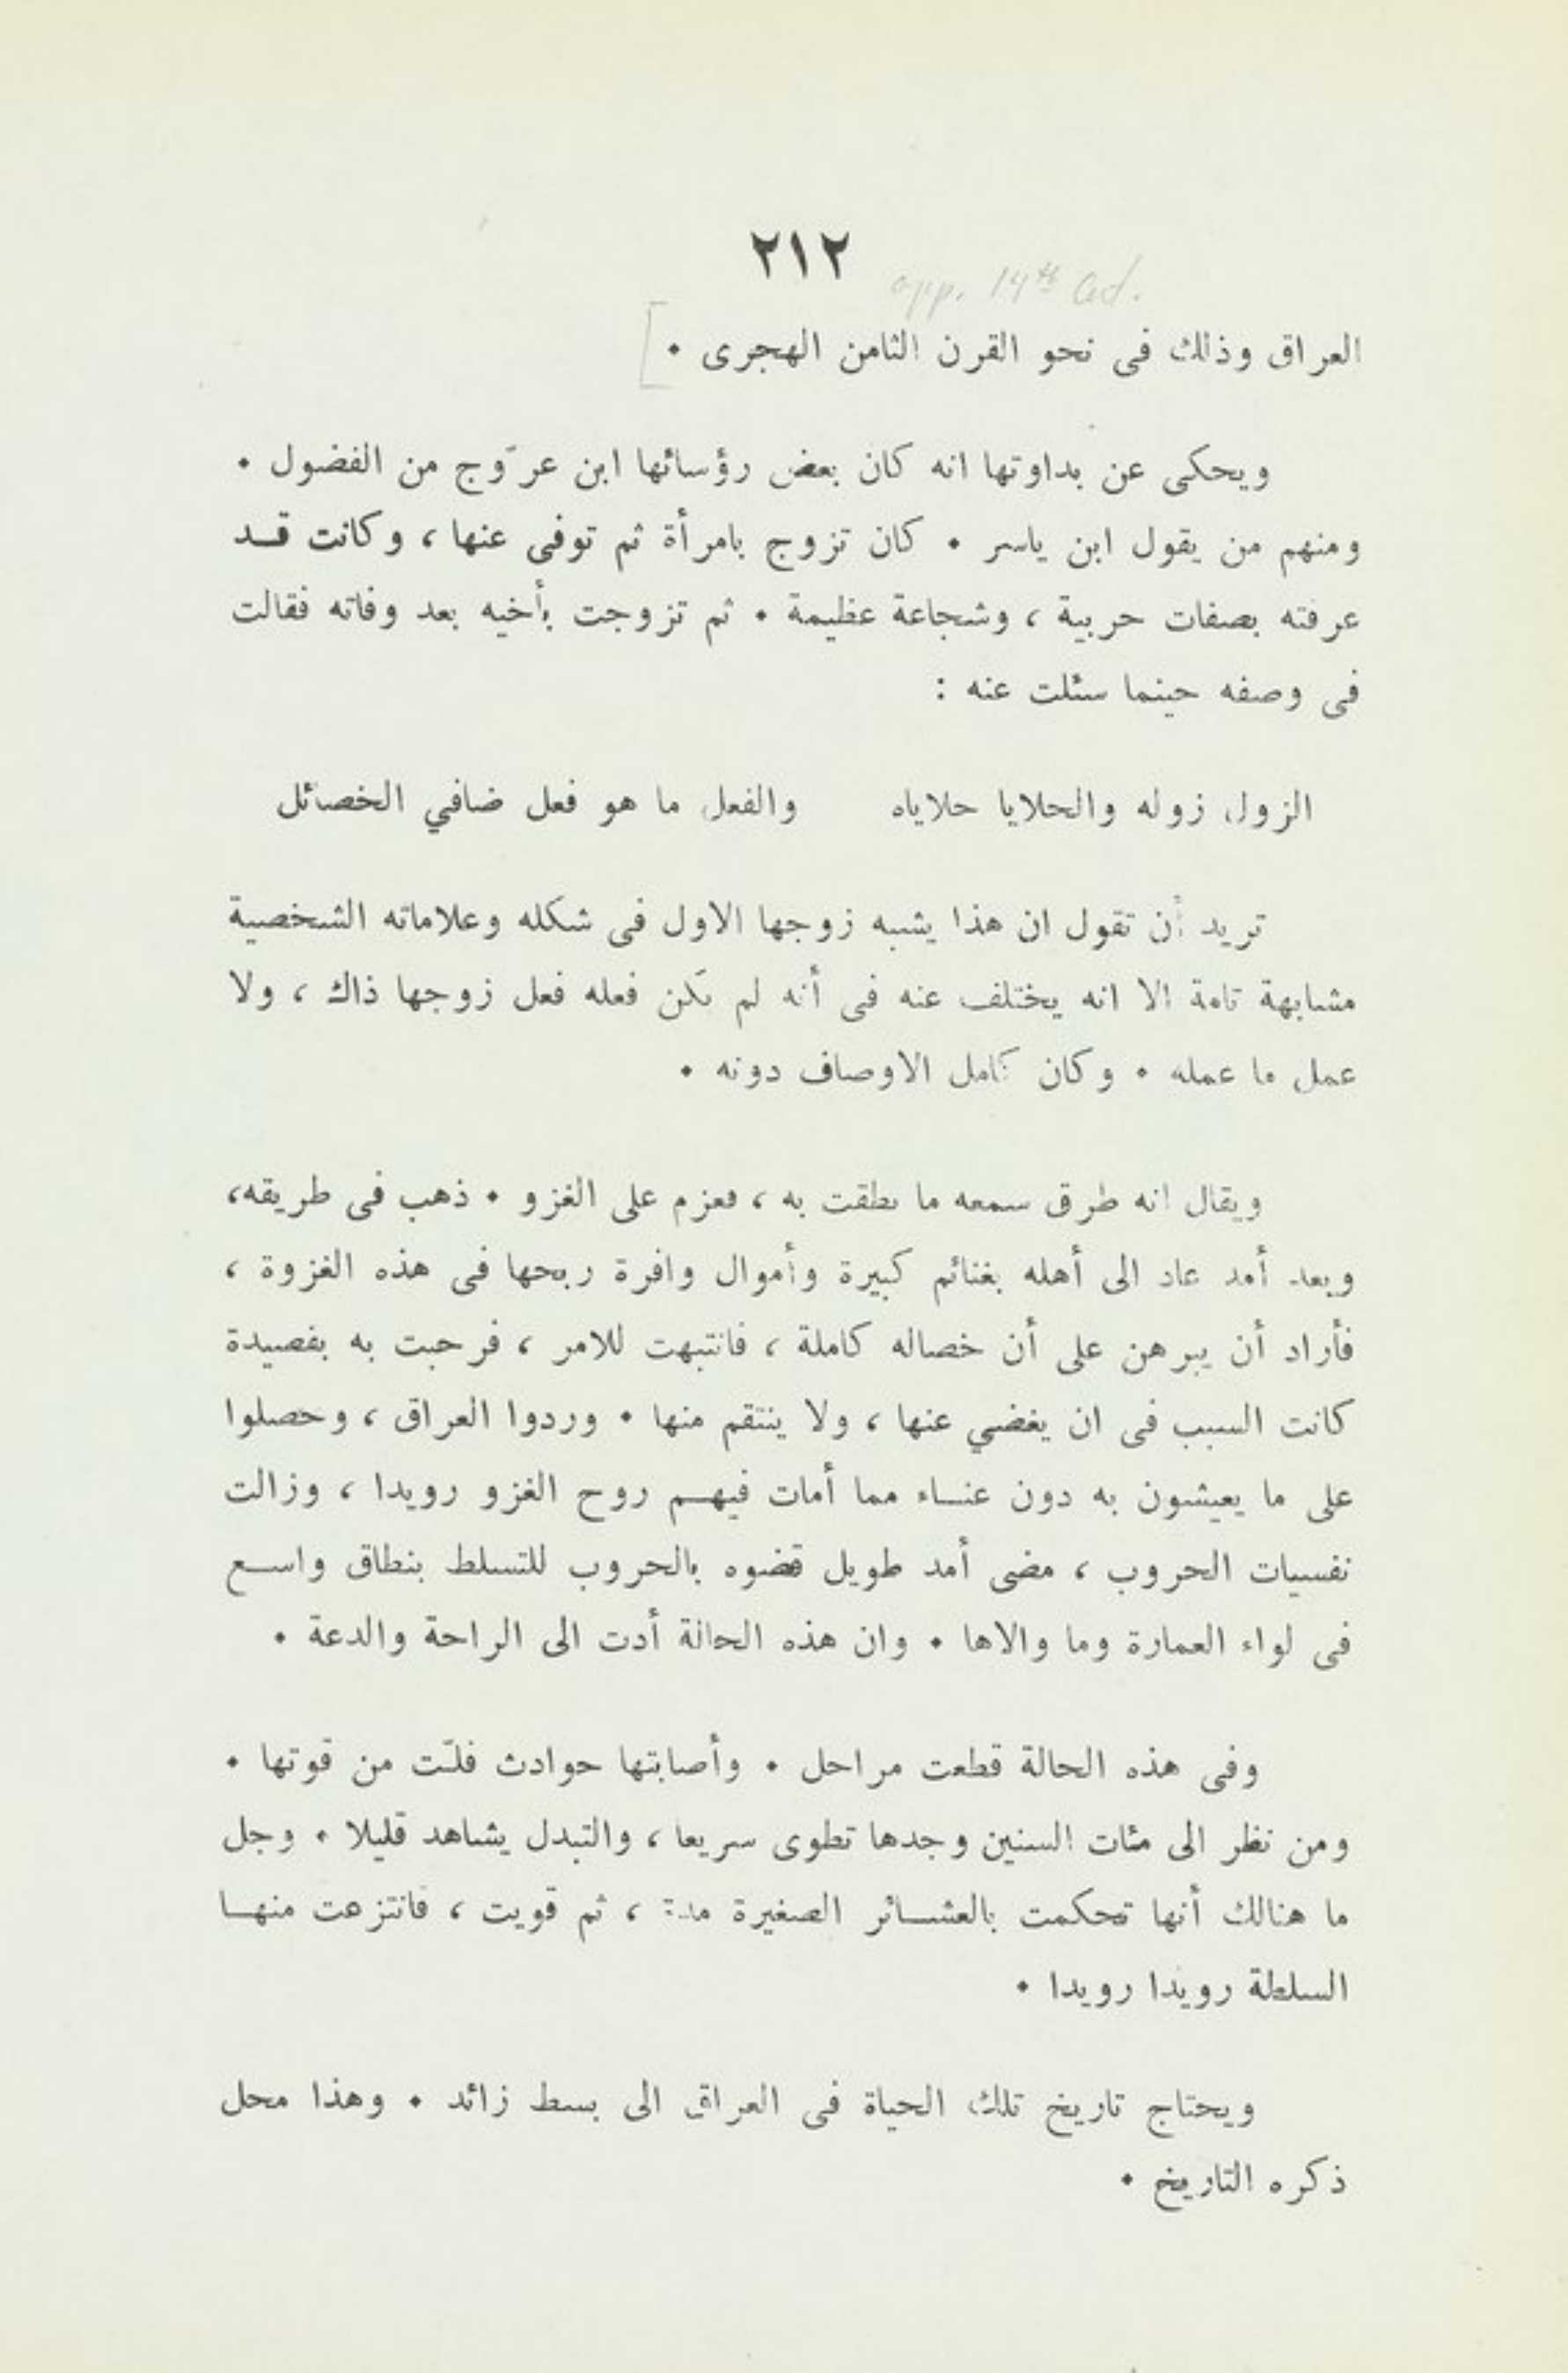 ٢١٢
app. 14th ad.
العراق وذلك فى نحو القرن الثامن الهجرى •
ويحكى عن بداوتها انه كان بعض رؤسائها ابن عرّوج من الفضول •
ومنهم من يقول ابن ياسر • كان تزوج بامرأة ثم توفى عنها ، وكانت قد
عرفته بصفات حربية ، وشجاعة عظيمة • ثم تزوجت بأخيه بعد وفاته فقالت
فى وصفه حينما سئلت عنه :
الزول زوله والحلايا حلاياه والفعل ما هو فعل ضافي الخصائل
تريد أن تقول ان هذا يشبه زوجها الاول فى شكله وعلاماته الشخصية
مشابهة تامة الا انه يختلف عنه فى أنه لم تكن فعله فعل زوجها ذاك ، ولا
عمل ما عمله • وكان كامل الاوصاف دونه •
ويقال انه طرق سمعه ما نطقت به ، فعزم على الغزو • ذهب فى طريقه،
وبعد أمد عاد الى أهله بغنائم كبيرة وأموال وافرة ربحها فى هذه الغزوة ،
فأراد أن يبرهن على أن خصاله كاملة ، فانتبهت للامر ، فرحبت به بقصيدة
كانت السبب فى ان يغضي عنها ، ولا ينتقم منها • وردوا العراق ، وحصلوا
على ما يعيشون به دون عنـاء مما أمات فيهـم روح الغزو رويدا ، وزالت
نفسيات الحروب ، مضى أمد طويل قضوه بالحروب للتسلط بنطاق واسـع
فى لواء العمارة وما والاها • وان هذه الحالة أدت الى الراحة والدعة •
وفى هذه الحالة قطعت مراحل • وأصابتها حوادث فلّت من قوتها •
ومن نظر الى مئات السنين وجدها تطوى سريعا ، والتبدل يشاهد قليلا • وجل
ما هنالك أنها تحكمت بالعشـائر الصغيرة مدة ، ثم قويت ، فانتزعت منهـا
السلطة رويدا رويدا •
ويحتاج تاريخ تلك الحياة فى العراق الى بسط زائد • وهذا محل
ذكره التاريخ •